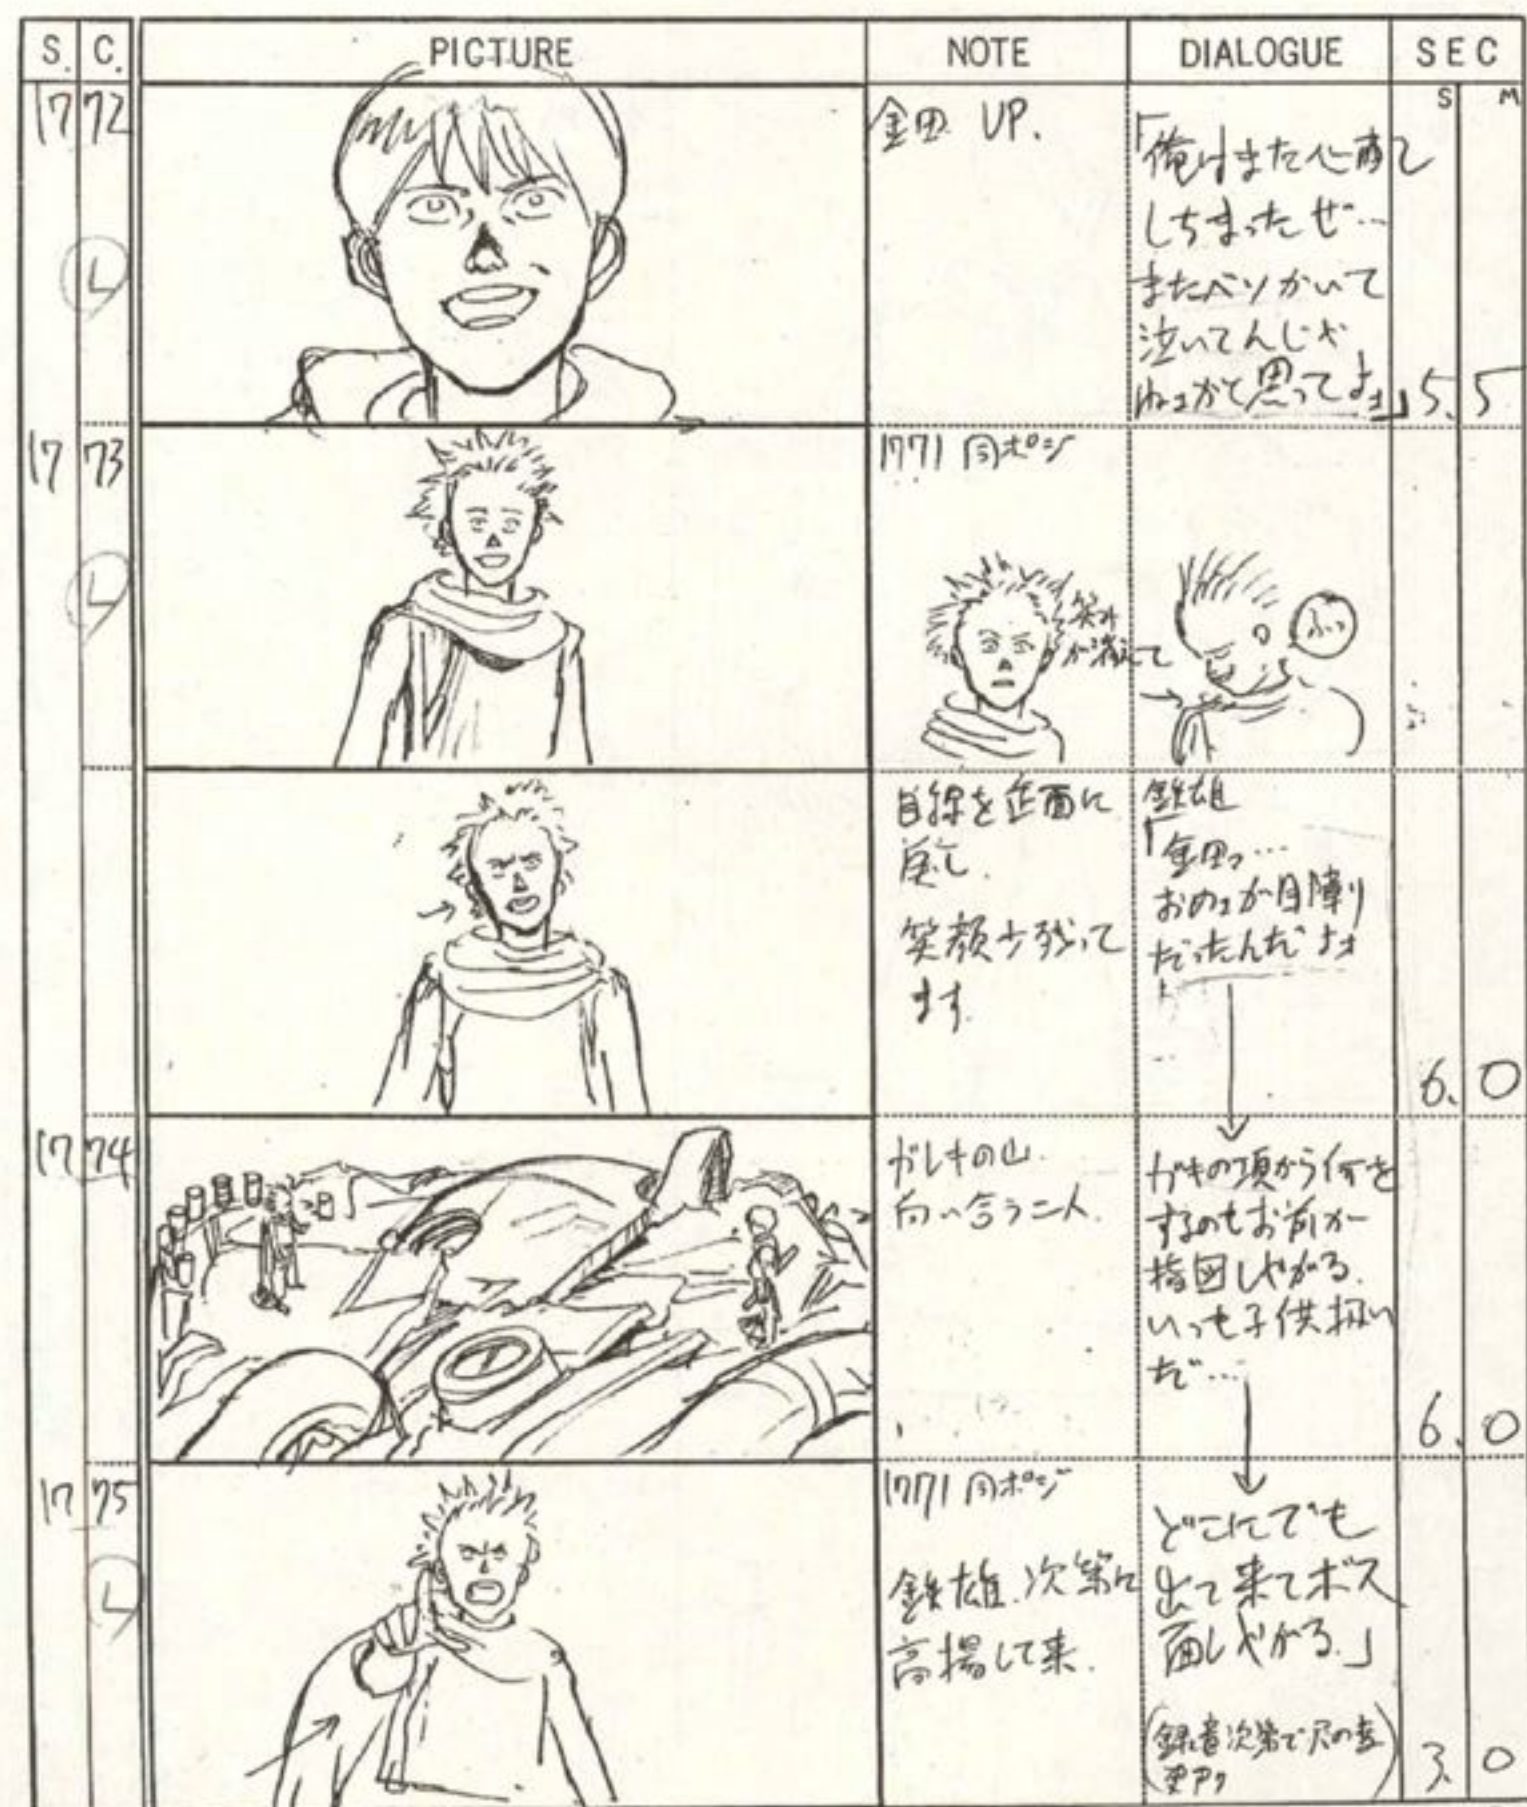 S. C. PICTURE NOTE DIALOGUE SEC
S M
17 72
金田 UP.
「俺はまた心配
しちまったぜ…
またベソかいて
泣いてんじゃ
ねェかと思ってよォ」
5. 5
17 73
1771 同ポジ
笑み
が消えて
ふっ
目線を正面に
笑顔少残って
ます.
鉄雄
「金田ァ…
おめェが目障り
だったんだよォ
6. 0
17 74
ガレキの山.
向い合う二人.
ガキの頃から何を
するのもお前が
指図しやがる.
いつも子供扱い
だ…
6. 0
17 75
1771 同ポジ
鉄雄.次第に
高揚して来.
どこにでも
出て来てボス
面しやがる.」
(録音次第で尺の
3. 0